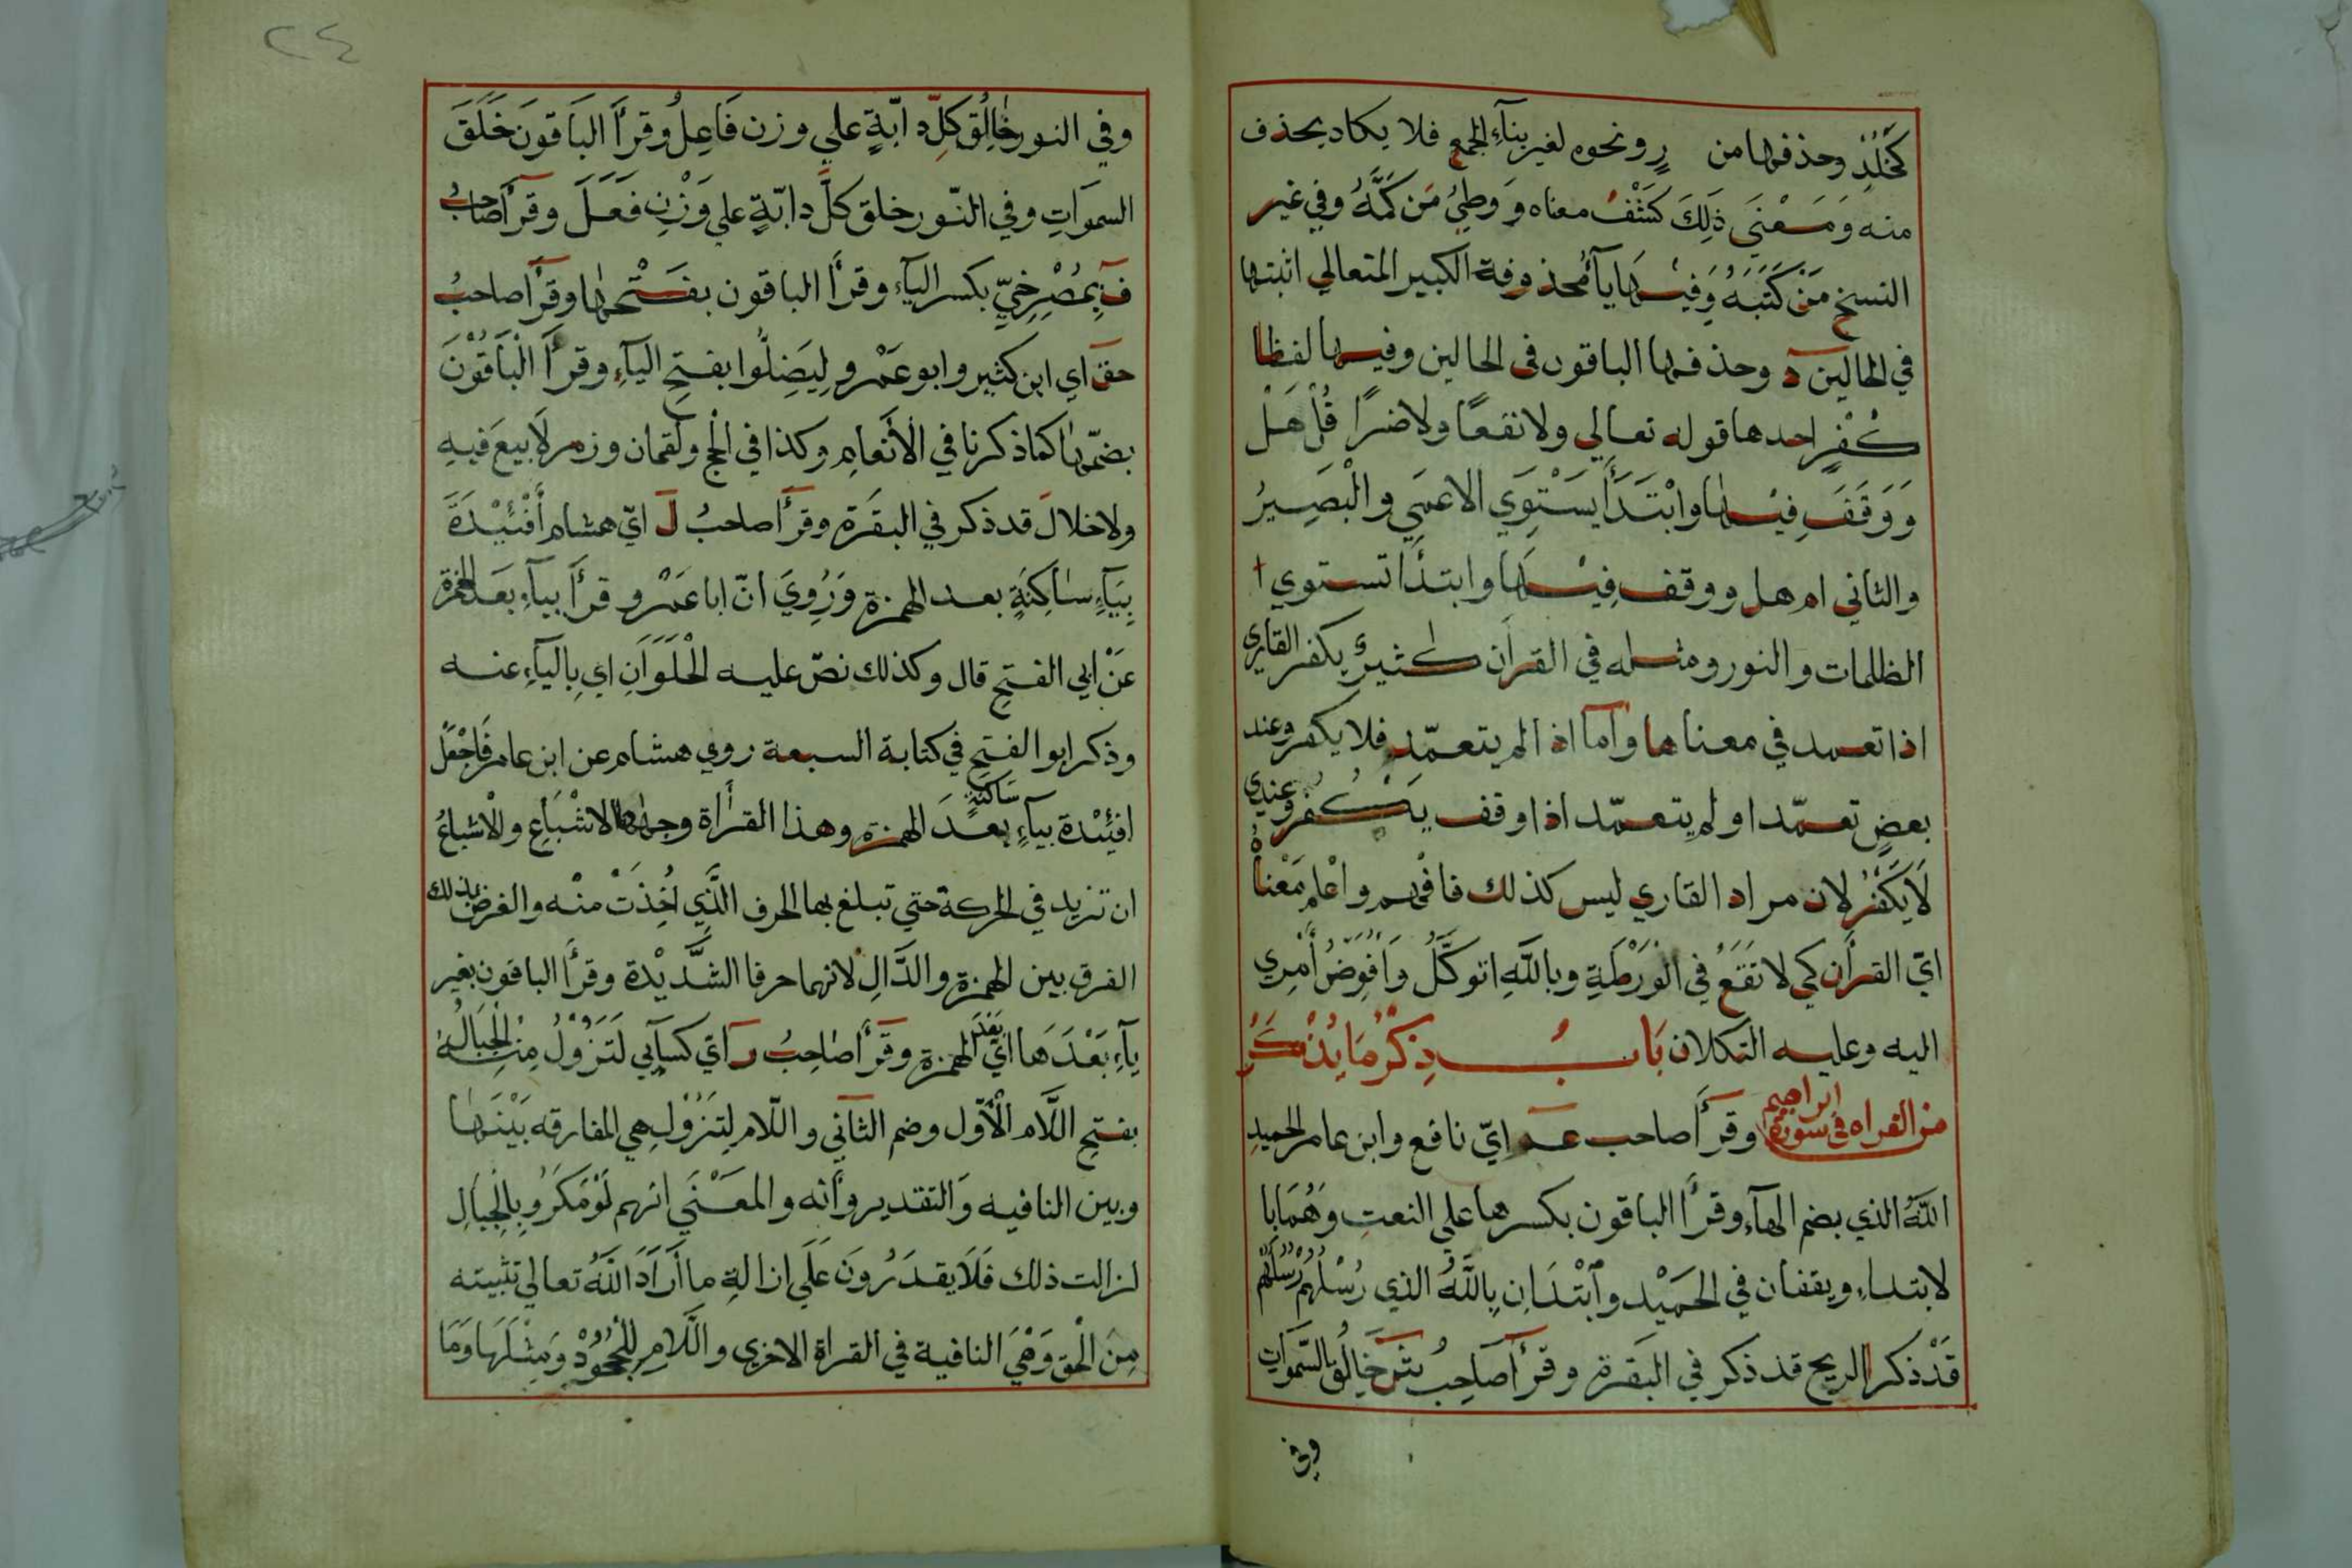 كَخُلْدٍ وحذفها من رٍ ونحوه لغير بنآءِ الجمع فلا يكاد يحذف
منه وَمَعْنَي ذَلِكَ كَشْفُ معناه وَوَطِيُ مَن كَمَّهُ وفي غير
النسخ مَنْ كَتَبَهُ وَفيْهَا يآءُ محذوفة الكبير المتعالي اثبتها
في الحالين دٓ وحذفها الباقون في الحالين وفيها لفظا
كُفْرٍ احدها قوله تعالي ولا نفعًا ولا ضرًا قُلْ هَلْ
وَوَقَفَ فِيْهَا وابْتَدَأَ يَسْتَوِي الاعمَي والْبَصِيرُ
والثاني ام هل ووقف فِيْهَا وابتدَأ تستوي
الظلمات والنور ومثله في القرآن كثيرٌ يكفر القاري
اذا تعمد في معناها وامّا اذا لم يتعمّد فلا يكفر وعند
بعضٍ تعمّد او لم يتعمّد اذا وقف يَكْفُر وعندي
لَا يَكْفُرُ لان مراد القاري ليس كذلك فافهم واعْلم مَعْناهُ
ايّ القرآن كي لا تَقَعُ في الوَرْطَةِ وبالله اتوكَّلُ وَاُفَوِّضُ أَمْرِي
اليه وعليه التكلان بَابُ ذِكْرُ مَا يُذْكَرُ
من القراه في سورة ابراهيم وقرَأَ صاحب عم ايّ نافع وابن عامر الحميدِ
اللّهُ الذي بضم الهآءِ وقرأَ الباقون بكسرها علي النعتِ وَهُمَا با
لابتداءِ ويقفان في الحَمِيْد وأبْتَدَان باللّهُ الذي رُسْلُهُم رُسُلُهُم
قَدْ ذكر الريح قد ذكر في البَقرة وقرَأَ صَاحِبُ شَرَ خَالِقُ السّموَاتِ
وفي
٢٤
وفي النور خَالِقُ كلِّ دابّةٍ علي وزن فَاعِلُ وقرأَ البَاقونَ خَلَقَ
السموَاتِ وفي النّور خلق كلَّ دابّةٍ علي وَزْنِ فَعَلَ وقرَأَ صَاحبُ
فٓ بِمُصْرِخِيِّ بكسر اليآءِ وقرأَ الباقون بفَتْحهَا وقرَأَ صاحبُ
حق اي ابن كثير وابو عَمْرو لِيَضِلُّوا بفتحِ اليآءِ وقرأَ الْبَاقُوْنَ
بضمّها كما ذكرنا في الأَنْعَامِ وكذا في الحج ولقمان وزمر لَا بيعَ فيهِ
ولا خلالَ قد ذكر في البقَرَة وقرَأَ صاحبُ لَ ايّ هشام أَفْئِيْدَةَ
بِيَآءٍ سَاكِنَةٍ بعد الهمزة وَرُوِيَ انّ ابا عَمْرو قرأَ بيآءٍ بَعْدَ الهمزة
عَنْ ابي الفتحِ قال وكذلك نصّ عليه الْحُلْوَانِ اي بِاليآءِ عنه
وذكر ابو الفتحِ في كتابة السبعة روي هشام عن ابن عامر فَاجْعَلْ
افئِيْدة بيآءٍ سَاكنةٍ بعدَ الهمزة وهذا القرأة وجهها الاشْبَاع والْاشباعُ
ان تزيد في الحركة حتي تبلغ بها الحرف الَّذي اُخِذَتْ منْه والغرض بذلك
الفرق بين الهمزة والدَّالِ لانهما حرفا الشَّدِيْدة وقرأَ الباقون بغير
يآءٍ بَعْدَهَا ايّ بَعْدَ الهمزة وقرَأَ صَاحِبُ رَ ايّ كسآيي لَتَزُوْلُ مِنْهُ الْجِبَالُ
بفتحِ اللَّام الْأوّل وضم الثاني واللّام لِتَزُوْل هي المفارقه بَيْنَهَا
وبين النافيه وَالتقدير وأنه والمعْنَي انهم لَوْ مَكَرُو بِالْجِبَالِ
لزالت ذلك فَلَا يقدَرُونَ عَلَي ازالةِ ما أَرَادَ اللّهُ تعالي تثبيته
مِنَ الْحق وَهْيَ النافية في القراة الاخري واللَّامِ لِلْجُحُوْدِ وَمِثْلَهَا وَمَا